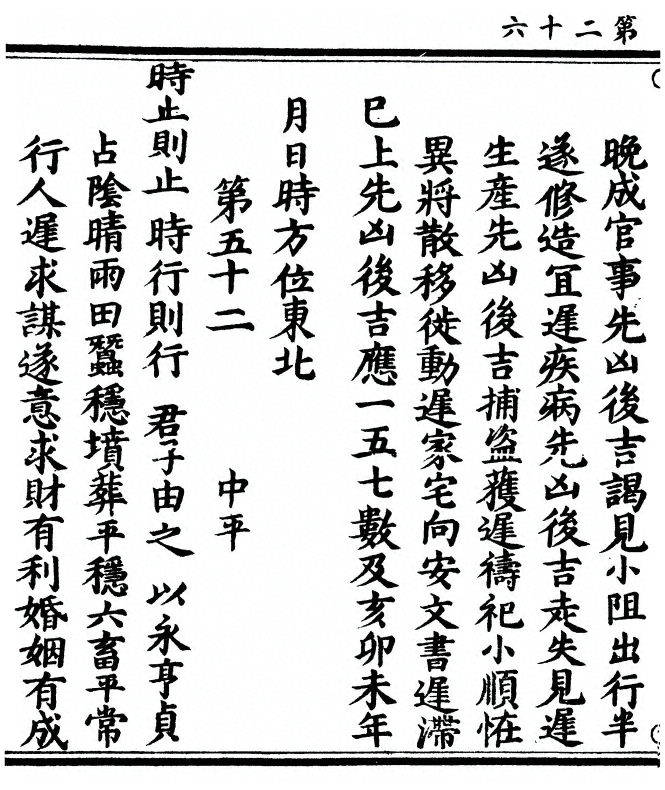 第二十六
晚成官事先凶後吉謁見小阻出行半
遂修造冝遲疾病先凶後吉走失見遲
生產先凶後吉捕盜獲遲禱祀小順怪
異將散移徙動遲家宅向安文書遲滯
巳上先凶後吉應一五七數及亥卯未年
月日時方位東北
第五十二 中平
時止則止 時行則行 君子由之 以永亨貞
占陰晴雨田蠶穩墳葬平穩六畜平常
行人遲求謀遂意求財有利婚姻有成